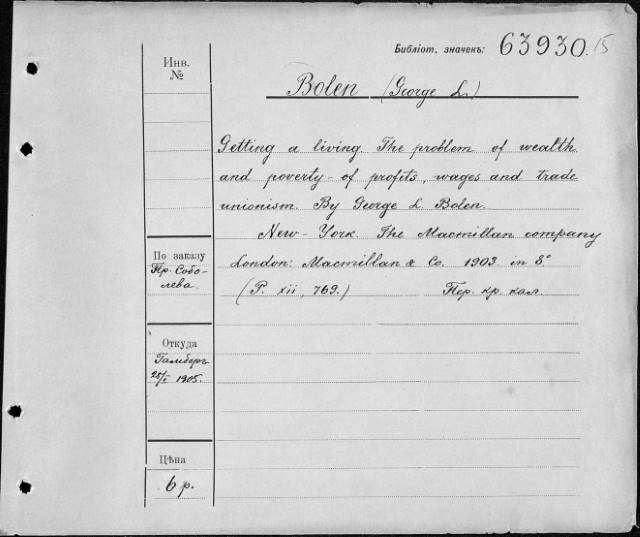 Библіот. значекъ: 63930.15
Инв.
№
Bolen (George L.)
Getting a living. The problem of wealth
and poverty - of profits, wages and trade
unionism. By George L. Bolen.
New-York. The Macmillan company
London: Macmillan & Co. 1903. in 8°
(P. xii, 769.) Пер. кр. кал.
По заказу
Пр. Собо-
лева.
Откуда
Гамберг
25/I 1905.
Цѣна
6 р.